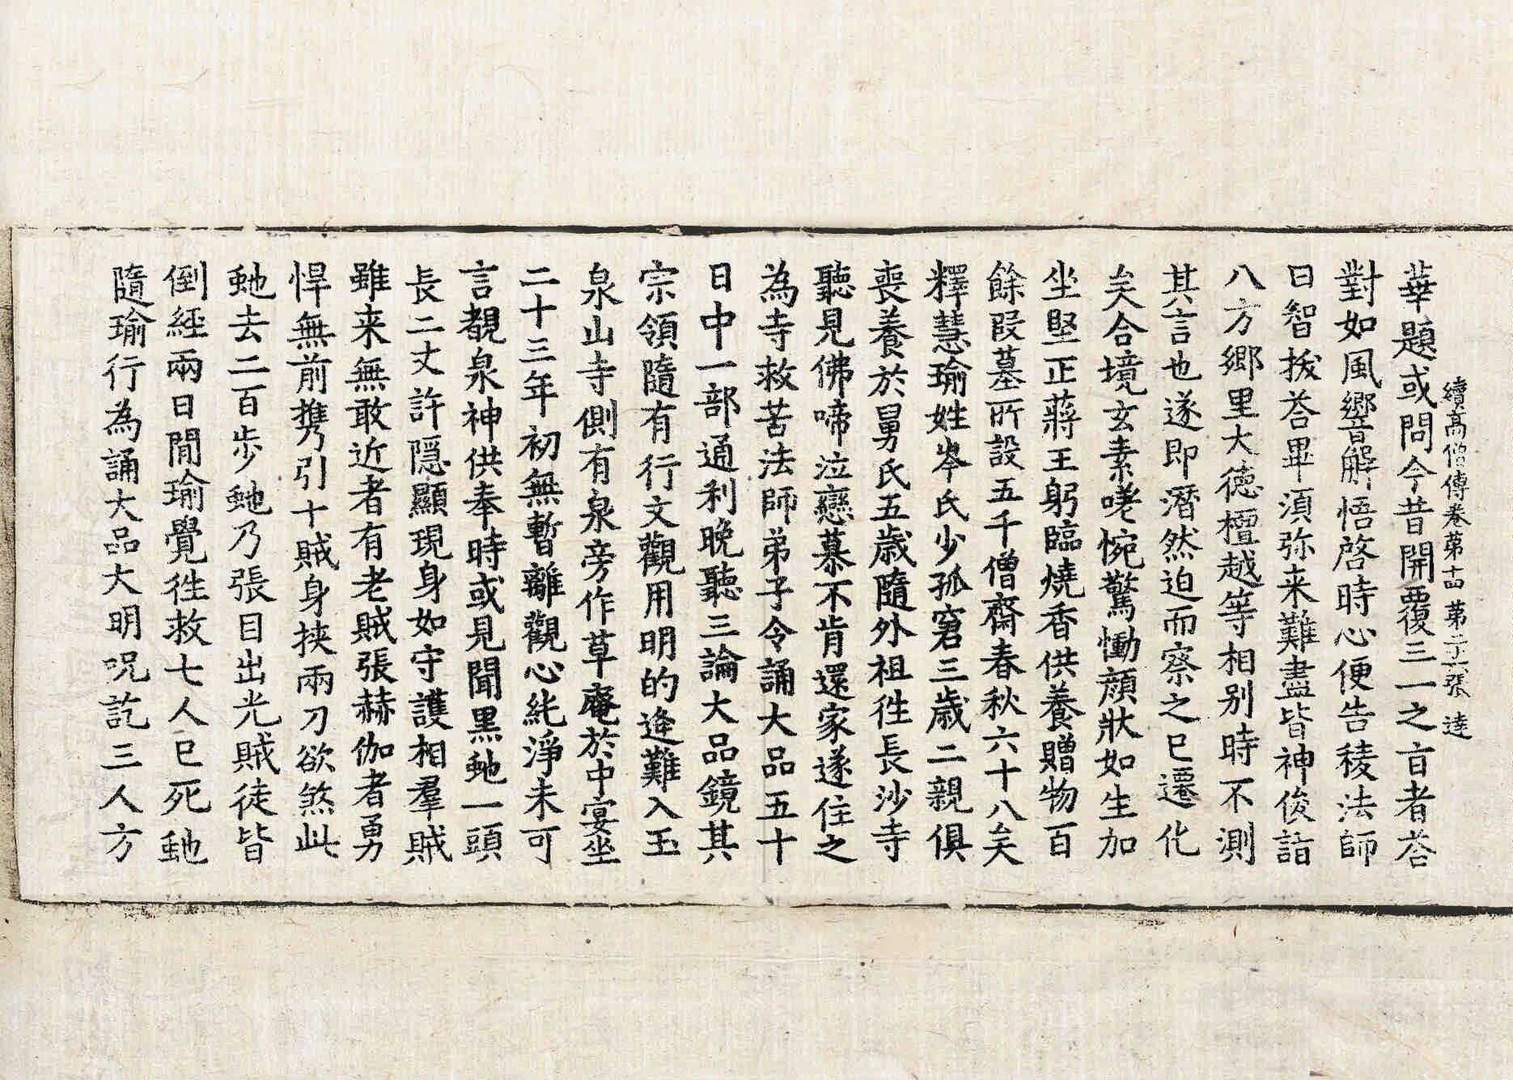 續髙僧傳卷第十四 第二十張 逵
華題或問今昔開覆三一之言者荅
對如風響解悟啓時心便告稜法師
曰智拔荅畢湏弥来難盡皆神俊詣
八方鄉里大德檀越等相别時不測
其言也遂即潛然迫而察之已遷化
矣合境玄素嗟惋驚慟顔狀如生加
坐堅正蔣王躬臨燒香供養贈物百
餘叚墓所設五千僧齋春秋六十八矣
釋慧瑜姓岑氏少孤窘三歳二親俱
喪養於舅氏五歳隨外祖往長沙寺
聽見佛啼泣戀慕不肯還家遂住之
為寺救苦法師弟子令誦大品五十
日中一部通利晚聽三論大品鏡其
宗領隨有行文觀用明的逄難入玉
泉山寺側有泉泉旁作草菴於中宴坐
二十三年初無暫離觀心純淨未可
言覩泉神供奉時或見聞黒虵一頭
長二丈許隱顯現身如守護相羣賊
雖来無敢近者有老賊張赫伽者勇
悍無前攜引十賊身挾兩刀欲煞此
虵去二百步虵乃張目出光賊徒皆
倒經兩日間瑜覺往救七人已死虵
隨瑜行為誦大品大明呪訖三人方